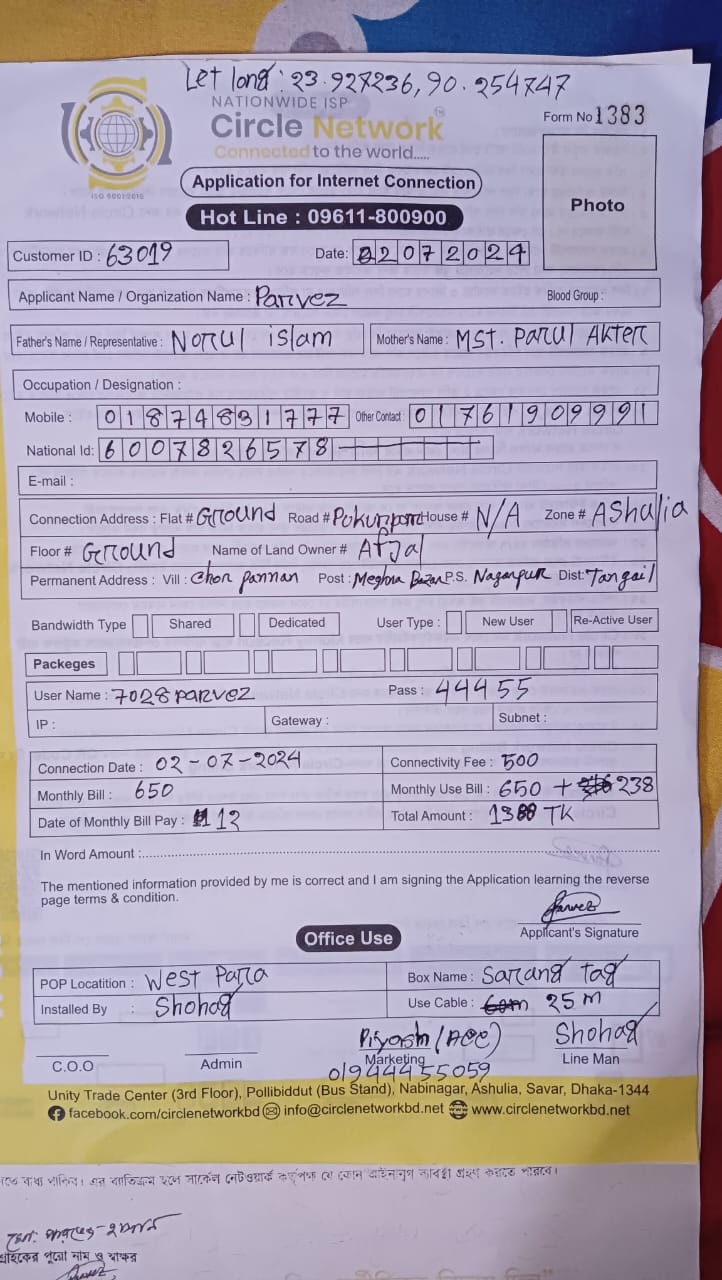 Let long : 23.927236, 90.254747
NATIONWIDE ISP
Circle Network
Connected to the world.....
ISO 9001:2015
Form No 1383
Photo
Application for Internet Connection
Hot Line : 09611-800900
Customer ID : 63019 Date: 02072024
Applicant Name / Organization Name : Parvez Blood Group :
Father's Name / Representative : Norul islam Mother's Name : MST. Parul Akter
Occupation / Designation :
Mobile : 01874831777 Other Contact : 01761909991
National Id: 6007826578
E-mail :
Connection Address : Flat # Ground Road # Pokurpar House # N/A Zone # AShulia
Floor # Ground Name of Land Owner # Afjal
Permanent Address : Vill : Chor pannan Post : Meghna Bazar P.S. Nagarpur Dist: Tangail
Bandwidth Type Shared Dedicated User Type : New User Re-Active User
Packeges
User Name : 7028parvez Pass : 44455
IP : Gateway : Subnet :
Connection Date : 02-07-2024 Connectivity Fee : 500
Monthly Bill : 650 Monthly Use Bill : 650 + 238
Date of Monthly Bill Pay : 12 Total Amount : 1388 TK
In Word Amount :
The mentioned information provided by me is correct and I am signing the Application learning the reverse
page terms & condition.
Parvez
Applicant's Signature
Office Use
POP Locatition : West Para Box Name : Sarang Tag
Installed By : Shohag Use Cable : 25 m
Piyash (ACC) Shohag
C.O.O Admin Marketing Line Man
01944455059
Unity Trade Center (3rd Floor), Pollibiddut (Bus Stand), Nabinagar, Ashulia, Savar, Dhaka-1344
facebook.com/circlenetworkbd info@circlenetworkbd.net www.circlenetworkbd.net
বাধ্য থাকিব। এর ব্যতিক্রম হলে সার্কেল নেটওয়ার্ক কর্তৃপক্ষ যে কোন আইনানুগ ব্যবস্থা গ্রহণ করতে পারবে।
গ্রাহকের পুরো নাম ও স্বাক্ষর